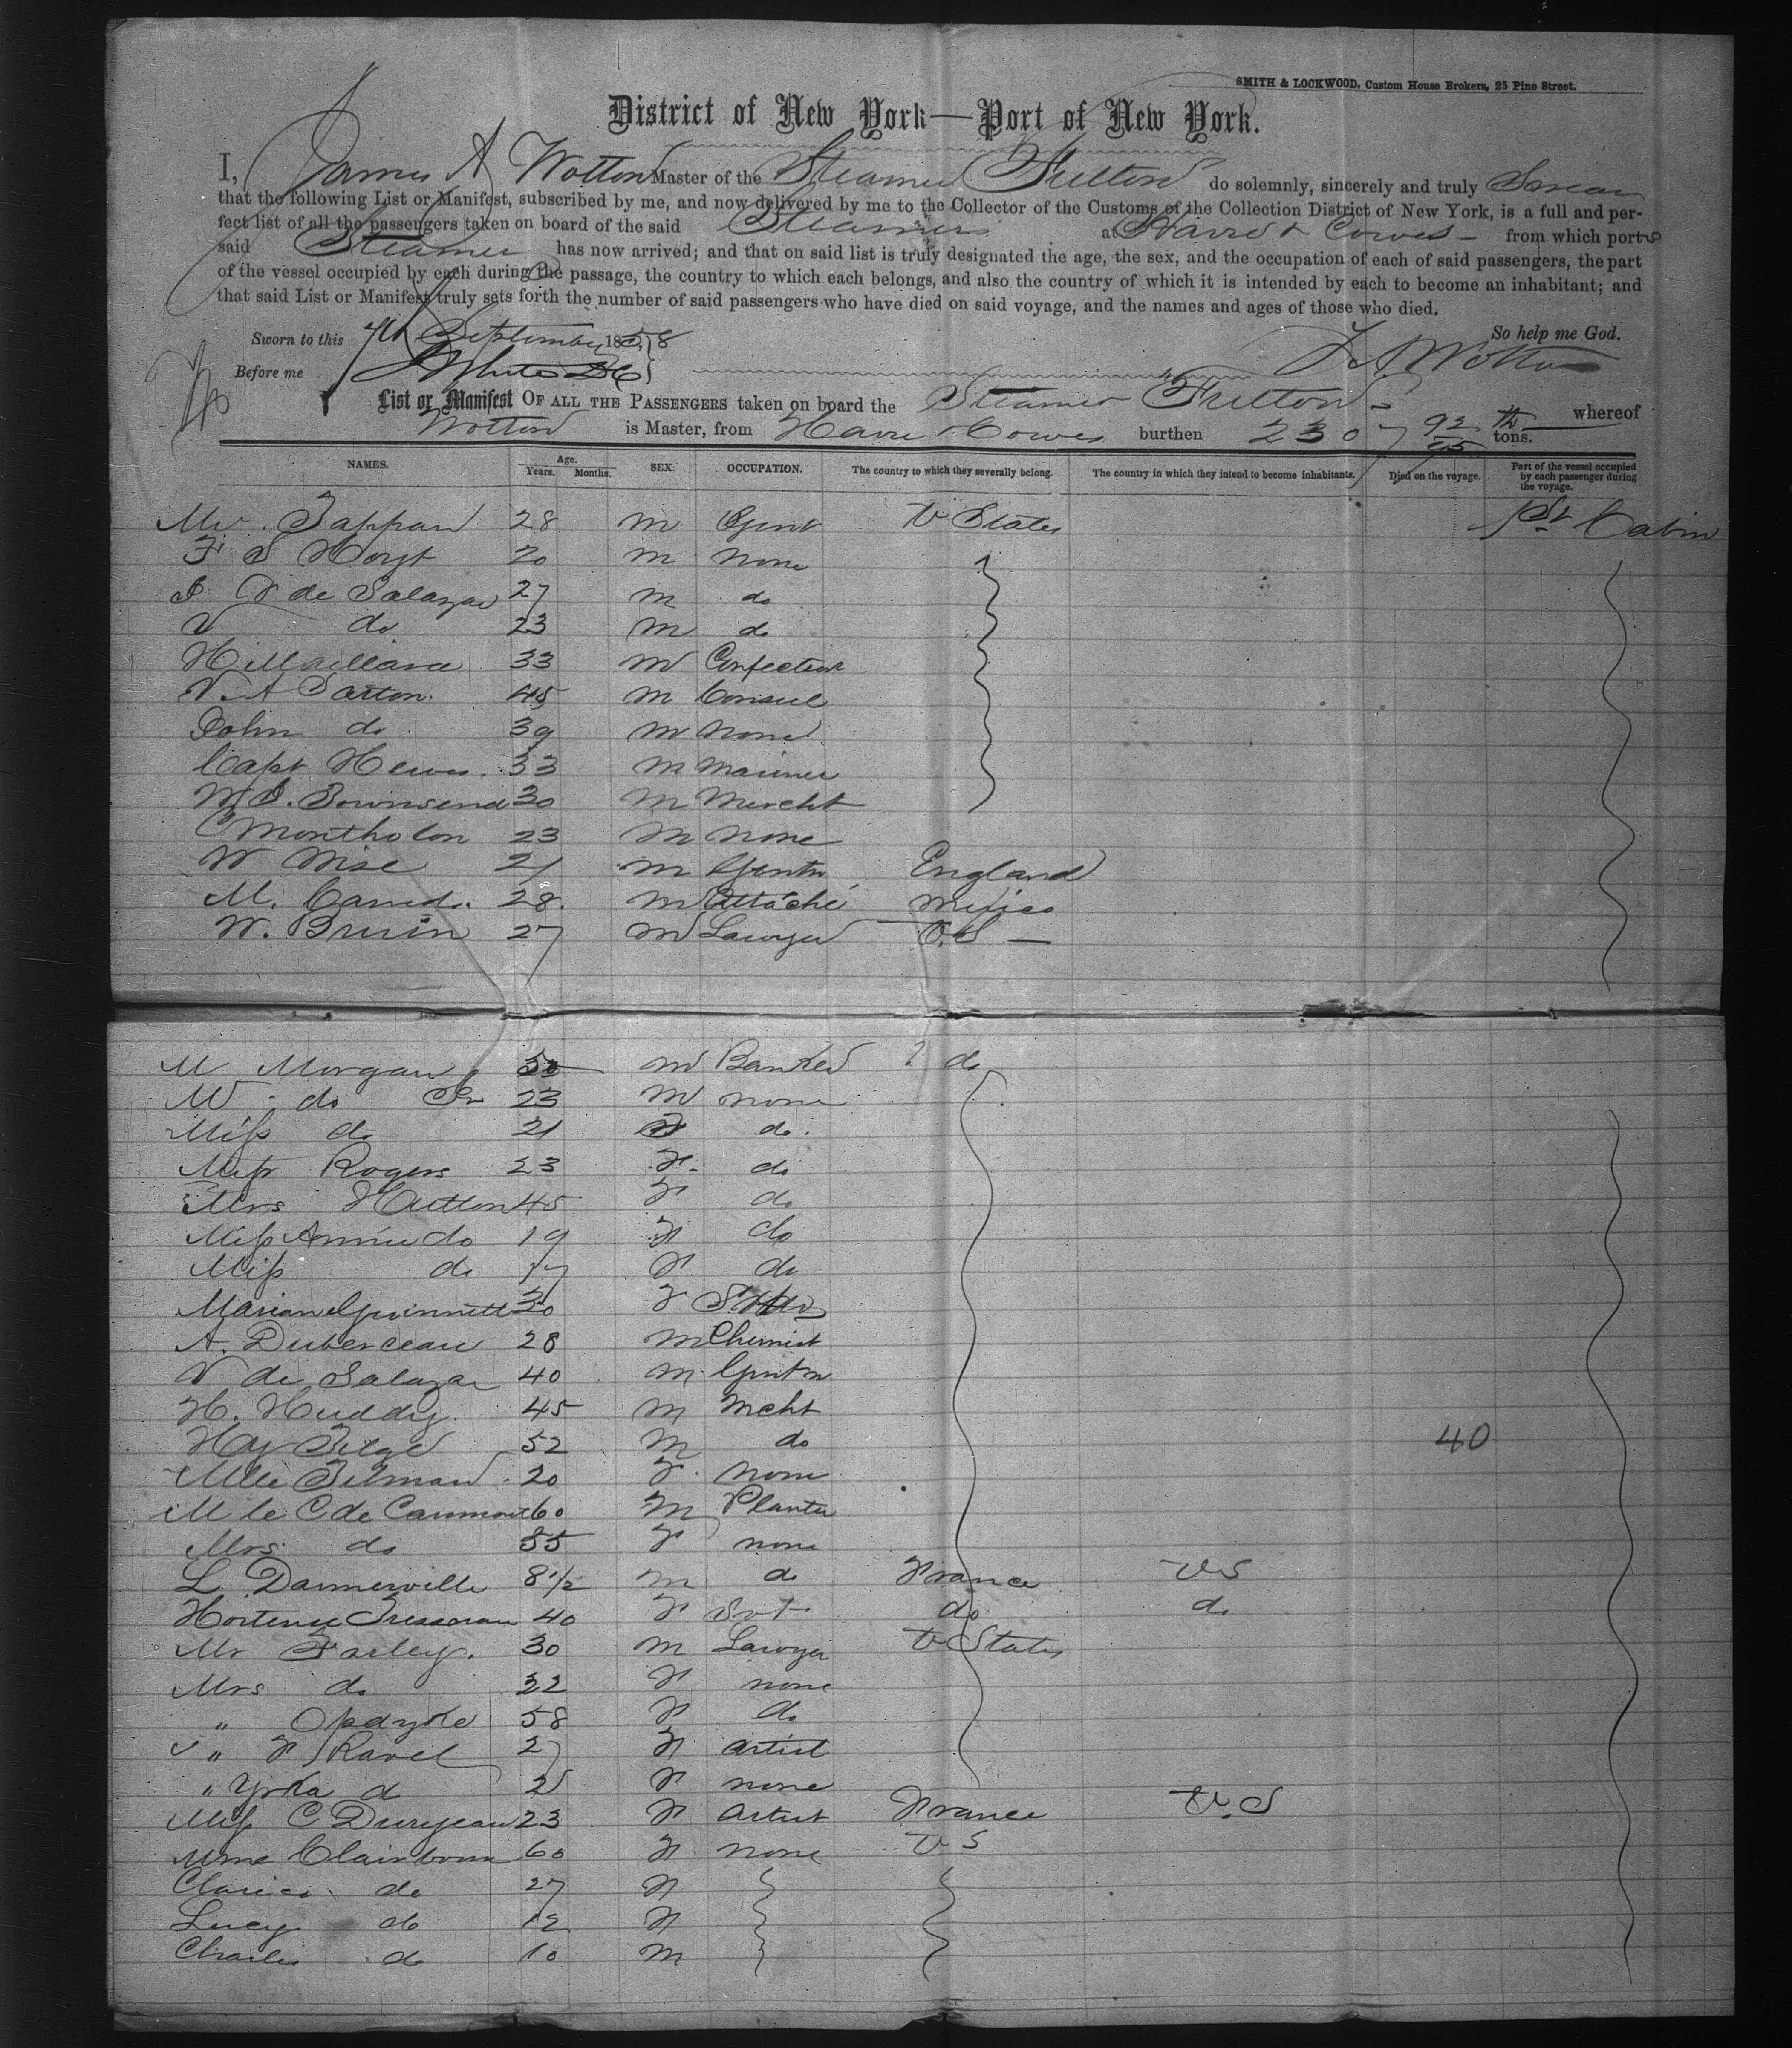 SMITH & LOCKWOOD, Custom House Brokers, 25 Pine Street.
District of New York—Port of New York.
I, James A Wotton Master of the Steamer Fulton do solemnly, sincerely and truly Swear
that the following List or Manifest, subscribed by me, and now delivered by me to the Collector of the Customs of the Collection District of New York, is a full and per-
fect list of all the passengers taken on board of the said Steamer at Havre & Cowes from which ports
said Steamer has now arrived; and that on said list is truly designated the age, the sex, and the occupation of each of said passengers, the part
of the vessel occupied by each during the passage, the country to which each belongs, and also the country of which it is intended by each to become an inhabitant; and
that said List or Manifest truly sets forth the number of said passengers who have died on said voyage, and the names and ages of those who died.
Sworn to this 7th September 1858 So help me God.
Before me J A Wotton
List or Manifest OF ALL THE PASSENGERS taken on board the Steamer Fulton whereof
Wotton is Master, from Havre & Cowes burthen 2307 92/95 th tons.
NAMES. Age. Years. Months. SEX. OCCUPATION. The country to which they severally belong. The country in which they intend to become inhabitants. Died on the voyage. Part of the vessel occupied by each passenger during the voyage.
Mr. Tappan 28 M Gent U States 1st Cabin
F S Hoyt 20 M none
J V de Salazar 27 M do
V do 23 M do
H Maillard 33 M Confection
V. A Sarton. 45 M Consul
John do 39 M none
Capt Hewes. 33 M Mariner
W J. Townsend 30 M Mercht
C Montholon 23 M none
W Wise 21 M Gentn England
M. 28. M Attaché Mexico
W. Bruin 27 M Lawyer U.S
M Morgan 50 M Banker do
M do Jr 23 M none
Miss do 21 F do.
Miss Rogers 23 F. do
Mrs Hutton 45 F do
Miss Annie do 19 F do
Miss do 17 F do
Marian Gwinnett 20 F
A. Duberceau 28 M Chemist
V. de Salazar 40 M. Gentn
H. Huddy. 45 M Mcht
Hy Tilge 52 M do 40
Mlle Tilman. 20 F. none
M le C de Caumont 60 M Planter
Mrs do 55 F none
L. Dannerville 8 1/2 M do France U S
Hortense 40 F Svt do do
Mr Farley. 30 M Lawyer U States
Mrs do 22 F none
" Opdyke 58 F do
" F Ravel 27 F artist
" Yrka d 25 F none
Miss C Duryeau 23 F Artist France U.S
Mme Clairborn 60 F. none U S
Clarice do 27 F
Lucy do 12 F
Charles do 10 M